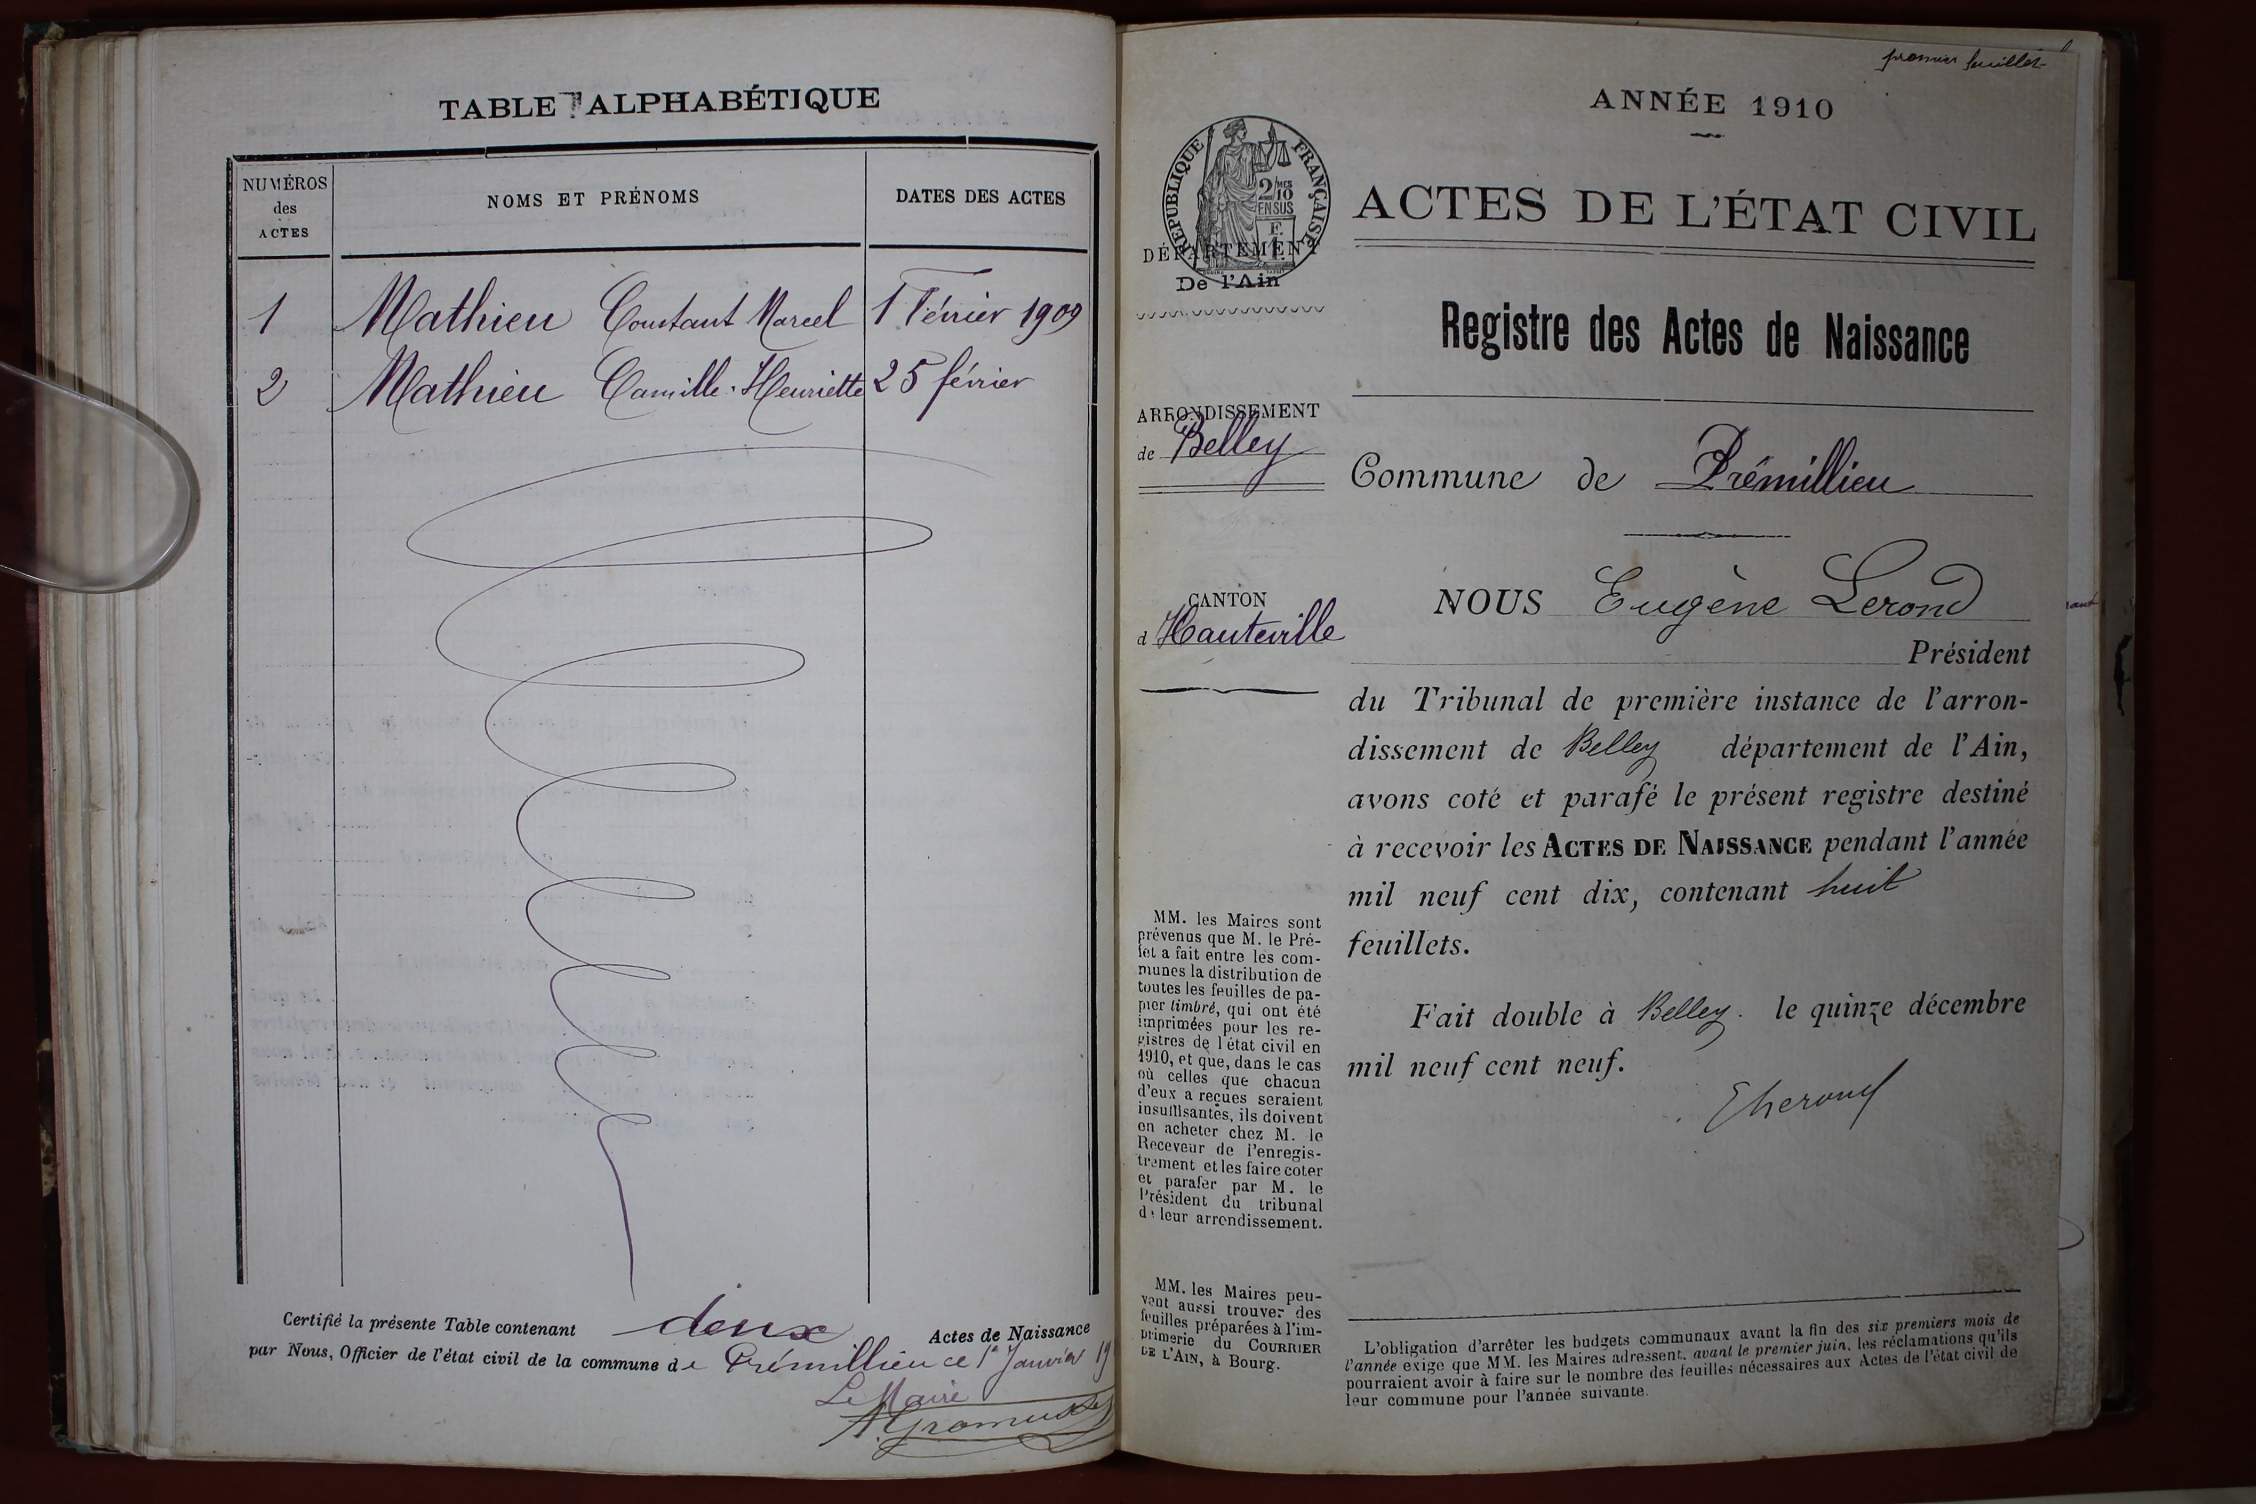 TABLE ALPHABÉTIQUE
NUMÉROS
des
ACTES
NOMS ET PRÉNOMS
DATES DES ACTES
1 Mathieu Constant Marcel 1 Février 1909
2 Mathieu Camille-Henriette 25 février
Certifié la présente Table contenant deux Actes de Naissance
par Nous, Officier de l'état civil de la commune de Prémillieu ce 1er Janvier 19
Le Maire
premier feuillet
ANNÉE 1910
RÉPUBLIQUE FRANÇAISE
2/10
MES
EN SUS
DÉPARTEMENT
De l'Ain
ACTES DE L'ÉTAT CIVIL
Registre des Actes de Naissance
ARRONDISSEMENT
de Belley
Commune de Prémillieu
CANTON
d Hauteville
NOUS Eugène Lerond
Président
du Tribunal de première instance de l'arron-
dissement de Belley département de l'Ain,
avons coté et parafé le présent registre destiné
à recevoir les ACTES DE NAISSANCE pendant l'année
mil neuf cent dix, contenant huit
feuillets.
Fait double à Belley. le quinze décembre
mil neuf cent neuf.
MM. les Maires sont
prévenus que M. le Pré-
fet a fait entre les com-
munes la distribution de
toutes les feuilles de pa-
pier timbré, qui ont été
imprimées pour les re-
gistres de l'état civil en
1910, et que, dans le cas
où celles que chacun
d'eux a reçues seraient
insuffisantes, ils doivent
en acheter chez M. le
Receveur de l'enregis-
trement et les faire coter
et parafer par M. le
Président du tribunal
de leur arrondissement.
MM. les Maires peu-
vent aussi trouver des
feuilles préparées à l'im-
primerie du COURRIER
DE L'AIN, à Bourg.
L'obligation d'arrêter les budgets communaux avant la fin des six premiers mois de
l'année exige que MM. les Maires adressent, avant le premier juin, les réclamations qu'ils
pourraient avoir à faire sur le nombre des feuilles nécessaires aux Actes de l'état civil de
leur commune pour l'année suivante.